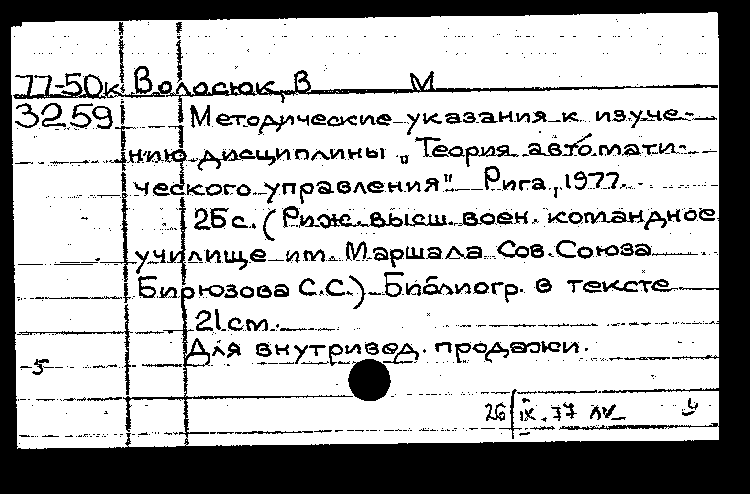 77-50к Волосюк, В М
3259 Методические указания к изуче-
нию дисциплины „Теория автомати-
ческого управления" Рига, 1977.
25с. (Риж. высш. воен. командное
училище им. Маршала Сов. Союза
Бирюзова С.С.) Библиогр. в тексте
21см.
Для внутривед. продажи.
5
26 IX. 77